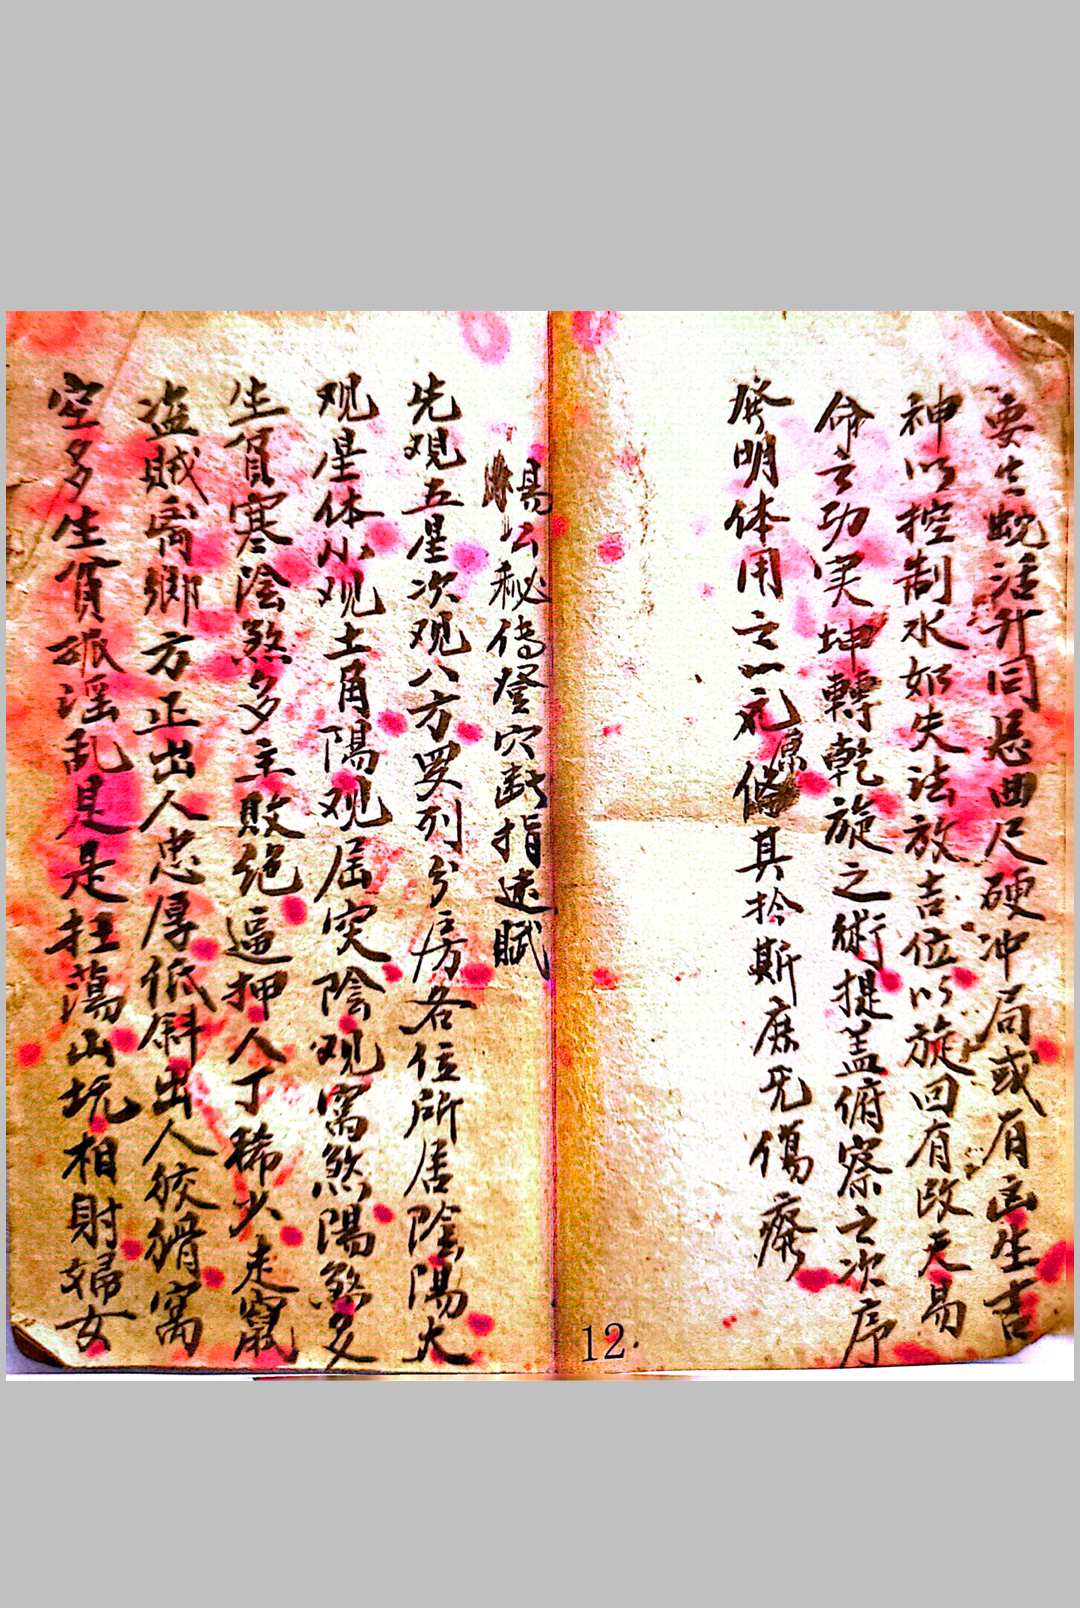 要生蛇活升同忌曲尺硬冲局或有凶生吉
神以控制水如失法放吉位以旋回有改天易
命之功実坤轉乾旋之術提盖俯察之次序
発明体用之一元原備其拎斯庶旡傷療
12
楊公秘傳登穴断指迷賦
先观五星次观八方罗列分房各位所居陰陽大
观星体小观土角陽观屈突陰观窩煞陽煞多
生貧寒陰煞多主敗绝逼押人丁稀少走竄
盗賊离鄉方正出人忠厚低斜出人狡猾窩
空多生貧孤淫乱是狂蕩山坑相射婦女